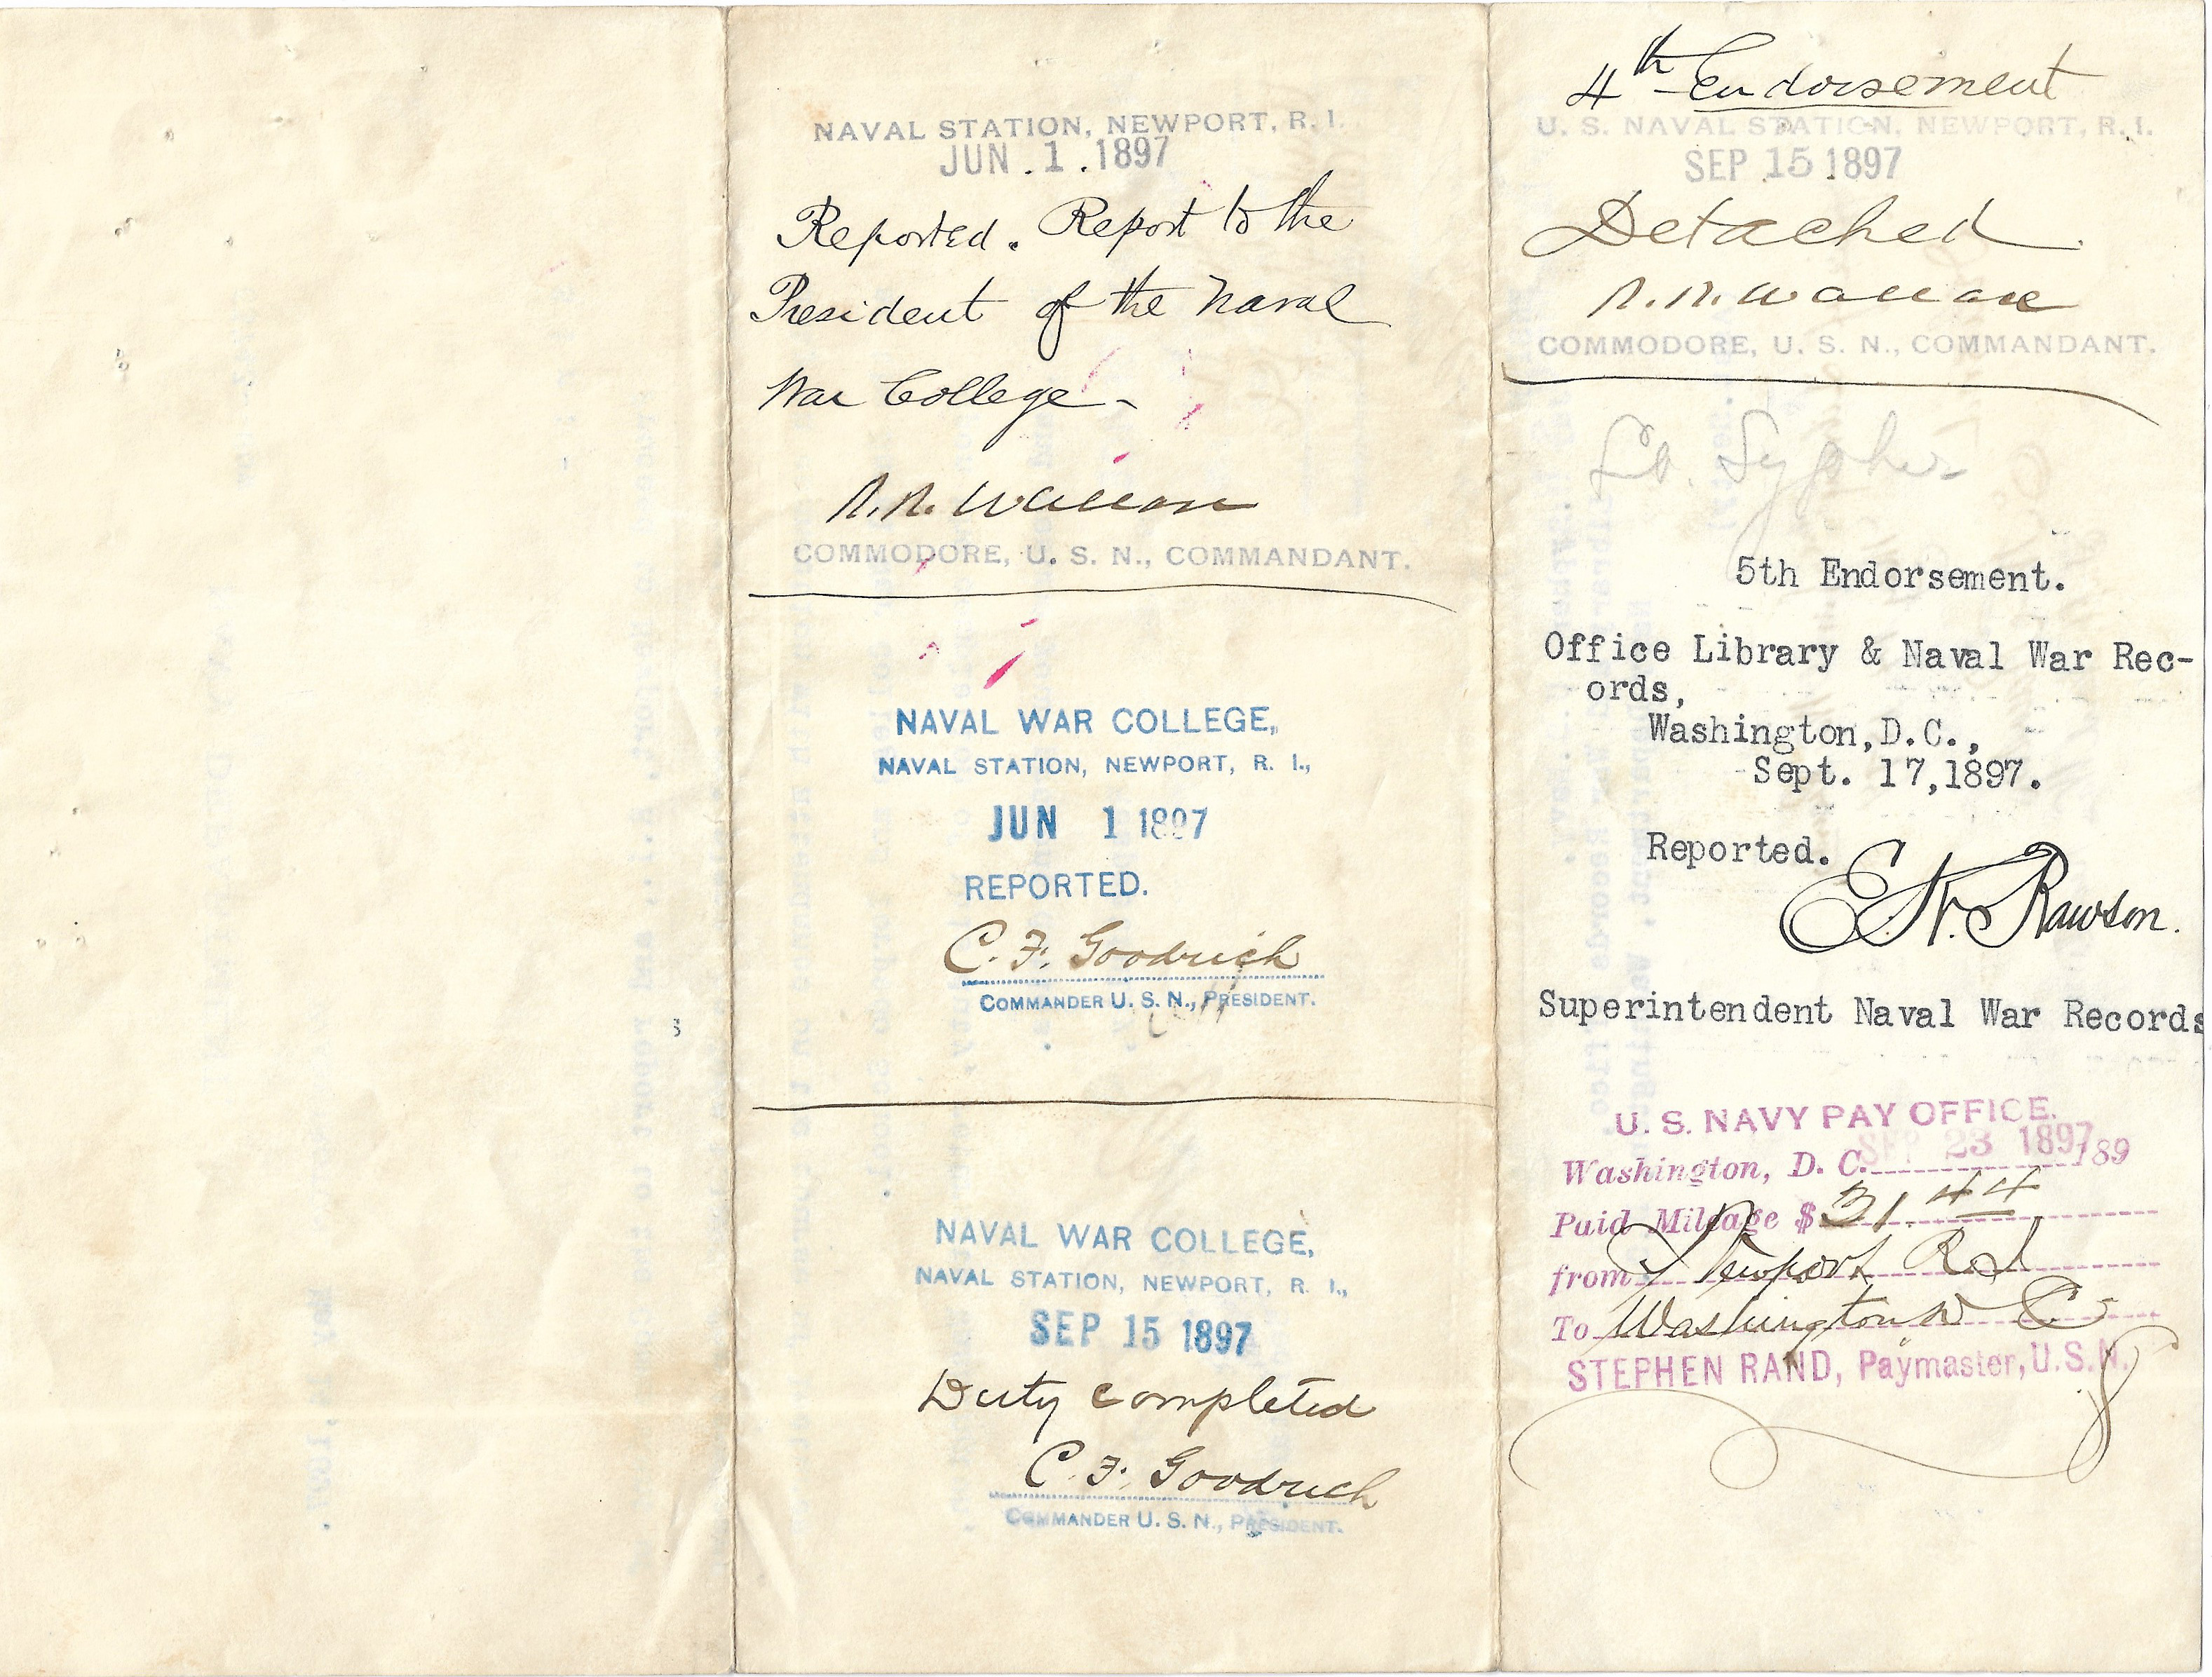 NAVAL STATION, NEWPORT, R. I.
JUN. 1. 1897
Reported. Report to the
President of the Naval
War College-
R. R. Wallace
COMMODORE, U. S. N., COMMANDANT.
NAVAL WAR COLLEGE,
NAVAL STATION, NEWPORT, R. I.,
JUN 1 1897
REPORTED.
C. F. Goodrich
COMMANDER U. S. N., PRESIDENT.
NAVAL WAR COLLEGE,
NAVAL STATION, NEWPORT, R. I.,
SEP 15 1897
Duty completed
C. F. Goodrich
COMMANDER U. S. N., PRESIDENT.
4th Endorsement
U. S. NAVAL STATION, NEWPORT, R. I.
SEP 15 1897
Detached.
R. R. Wallace
COMMODORE, U. S. N., COMMANDANT.
Lt. Sypher
5th Endorsement.
Office Library & Naval War Rec-
ords,
Washington, D.C.,
Sept. 17, 1897.
Reported.
E. K. Rawson.
Superintendent Naval War Records
U. S. NAVY PAY OFFICE.
Washington, D. C. SEP 23 1897 189
Paid Mileage $ 31.44
from Newport R I
To Washington D C
STEPHEN RAND, Paymaster, U.S.N.